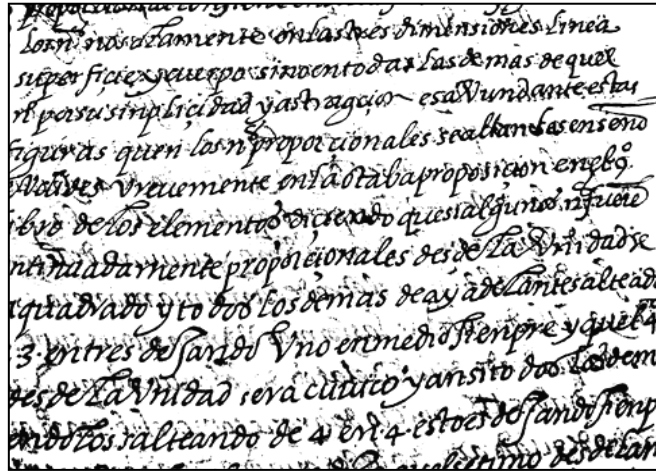 los nos solamente en las tres dimensiones linea
superficie y cuerpo sino en todas las demas de quel
nº por su sinplicidad y astraçion es abundante estas
figuras quen los nº proporcionales se allan las enseño
vrevemente en la otaba proposicion en el 9º
libro de los elementos diciendo que si algunos nº fuere
continuadamente proporçionales desde la Vnidad
quadrado y todos los demas de ay adelante salteado
3. en tres dejando Vno en medio sienpre y quel 4
desde la Vnidad sera cuuico y ansi todos los dem
salteando de 4 en 4 esto es dejando sienp
desde la